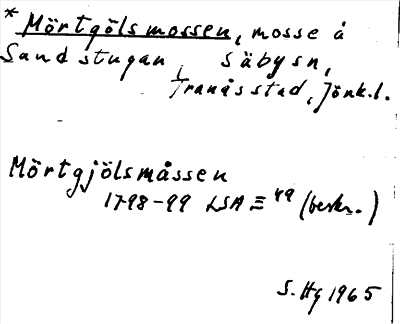 * Mörtgölsmossen, mosse å
Sandstugan, Säbysn,
Tranås stad, Jönk.l.
Mörtgjölsmåssen
1798-99 LSA Ξ 49 (beskr.)
S. Hg 1965